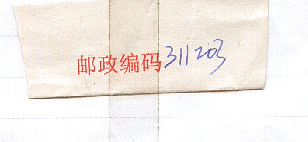 邮政编码311203